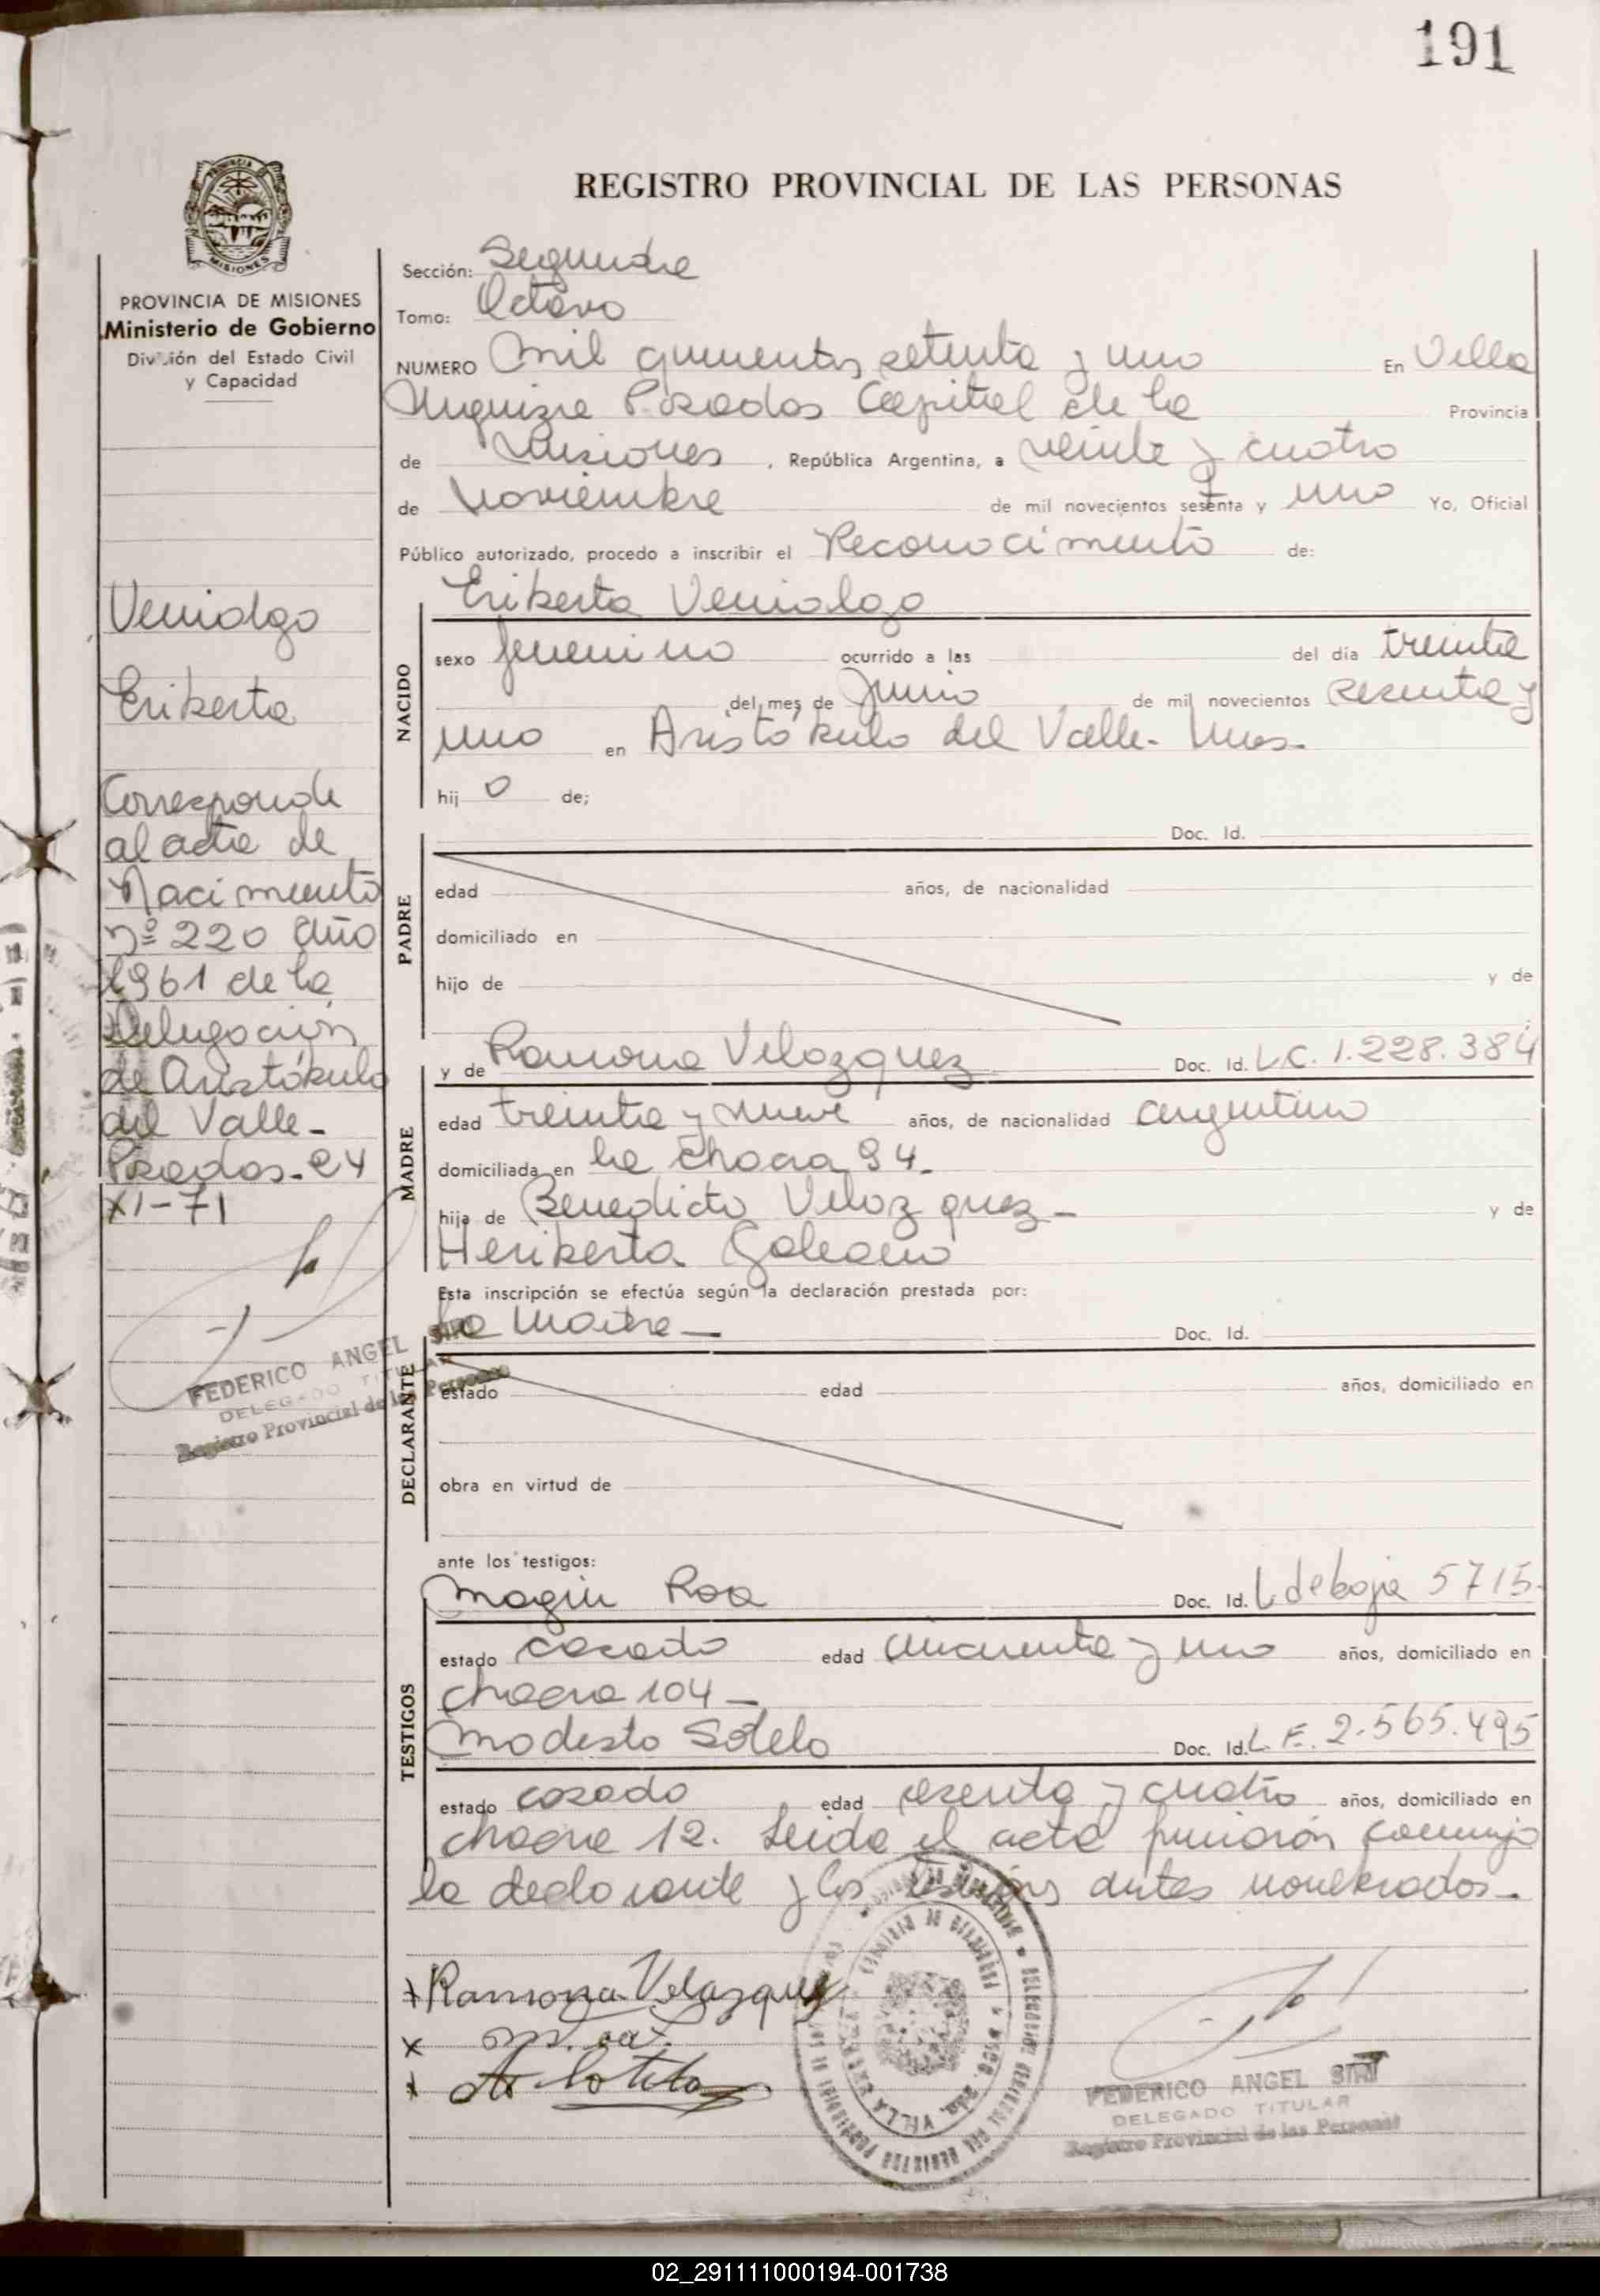 191
REGISTRO PROVINCIAL DE LAS PERSONAS
PROVINCIA DE MISIONES
Ministerio de Gobierno
División del Estado Civil
y Capacidad
Venialgo
Eriberta
Corresponde
al acta de
Nacimiento
Nº 220 Año
1961 de la
Delegación
de Aristóbulo
del Valle-
Posadas-24
XI-71
FEDERICO ANGEL SIRI
DELEGADO TITULAR
Registro Provincial de las Personas
Sección: Segunda
Tomo: Octavo
NUMERO Mil quinientos setenta y uno En Villa
Urquiza Posadas Capital de la Provincia
de Misiones, República Argentina, a veinte y cuatro
de Noviembre de mil novecientos setenta y uno Yo, Oficial
Público autorizado, procedo a inscribir el Reconocimiento de:
Eriberta Venialgo
NACIDO
sexo femenino ocurrido a las del día treinta
del mes de Junio de mil novecientos sesenta y
uno en Aristóbulo del Valle- Mnes-
hij o de;
PADRE
Doc. Id.
edad años, de nacionalidad
domiciliado en
hijo de y de
MADRE
y de Ramona Velazquez Doc. Id. L.C. 1.228.384
edad treinta y nueve años, de nacionalidad argentina
domiciliada en la chacra 94-
hija de Benedicto Velazquez- y de
Heriberta Galeano
Esta inscripción se efectúa según la declaración prestada por:
La Madre- Doc. Id.
DECLARANTE
estado edad años, domiciliado en
obra en virtud de
ante los testigos:
TESTIGOS
Magin Roa Doc. Id. L. de baja 5715-
estado casado edad cincuenta y uno años, domiciliado en
chacra 104-
Modesto Sotelo Doc. Id. L.E. 2.565.495
estado casado edad sesenta y cuatro años, domiciliado en
chacra 12. Leida el acta firmarón conmigo
la declarante y los testigos antes nombrados-
x Ramona Velazquez
x
x
FEDERICO ANGEL SIRI
DELEGADO TITULAR
Registro Provincial de las Personas
02_291111000194-001738